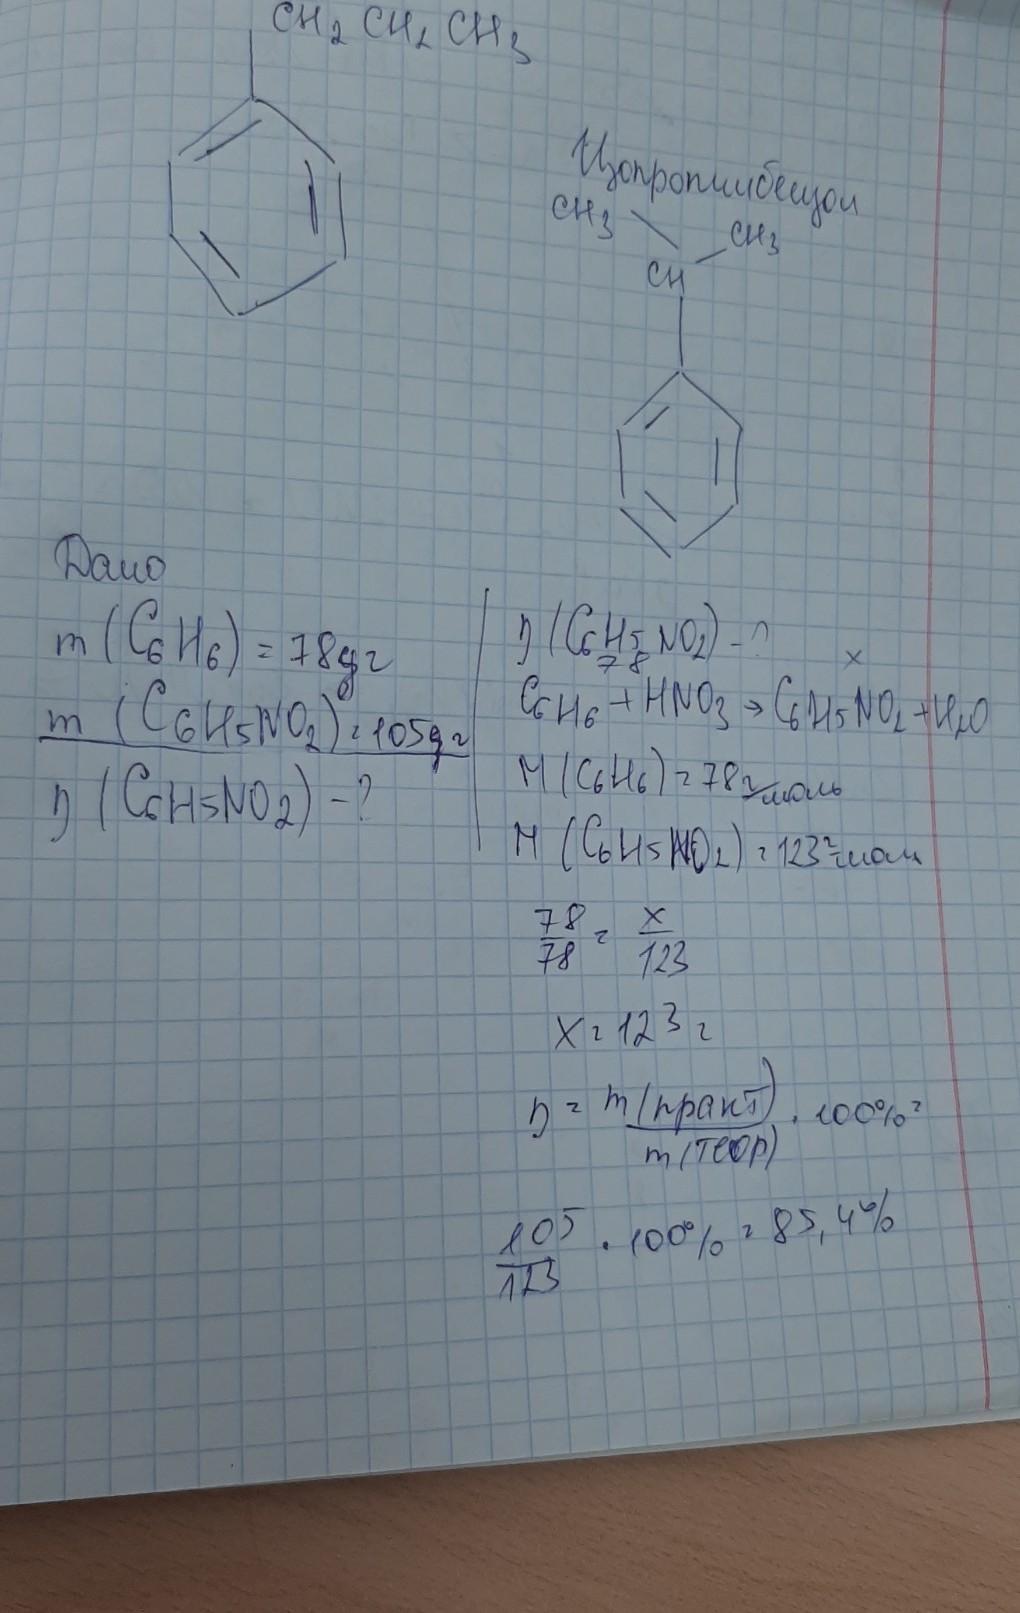 CH2 CH2 CH3
Изопропилбензол
CH3
CH3
CH
Дано
m (C6H6) = 78 г
m (C6H5NO2) = 105 г
η (C6H5NO2) - ?
η (C6H5NO2) - ?
78 x
C6H6 + HNO3 → C6H5NO2 + H2O
M (C6H6) = 78 г/моль
M (C6H5NO2) = 123 г/моль
78/78 = x/123
x = 123 г
η = m(практ)/m(теор) · 100% =
105/123 · 100% = 85,4%